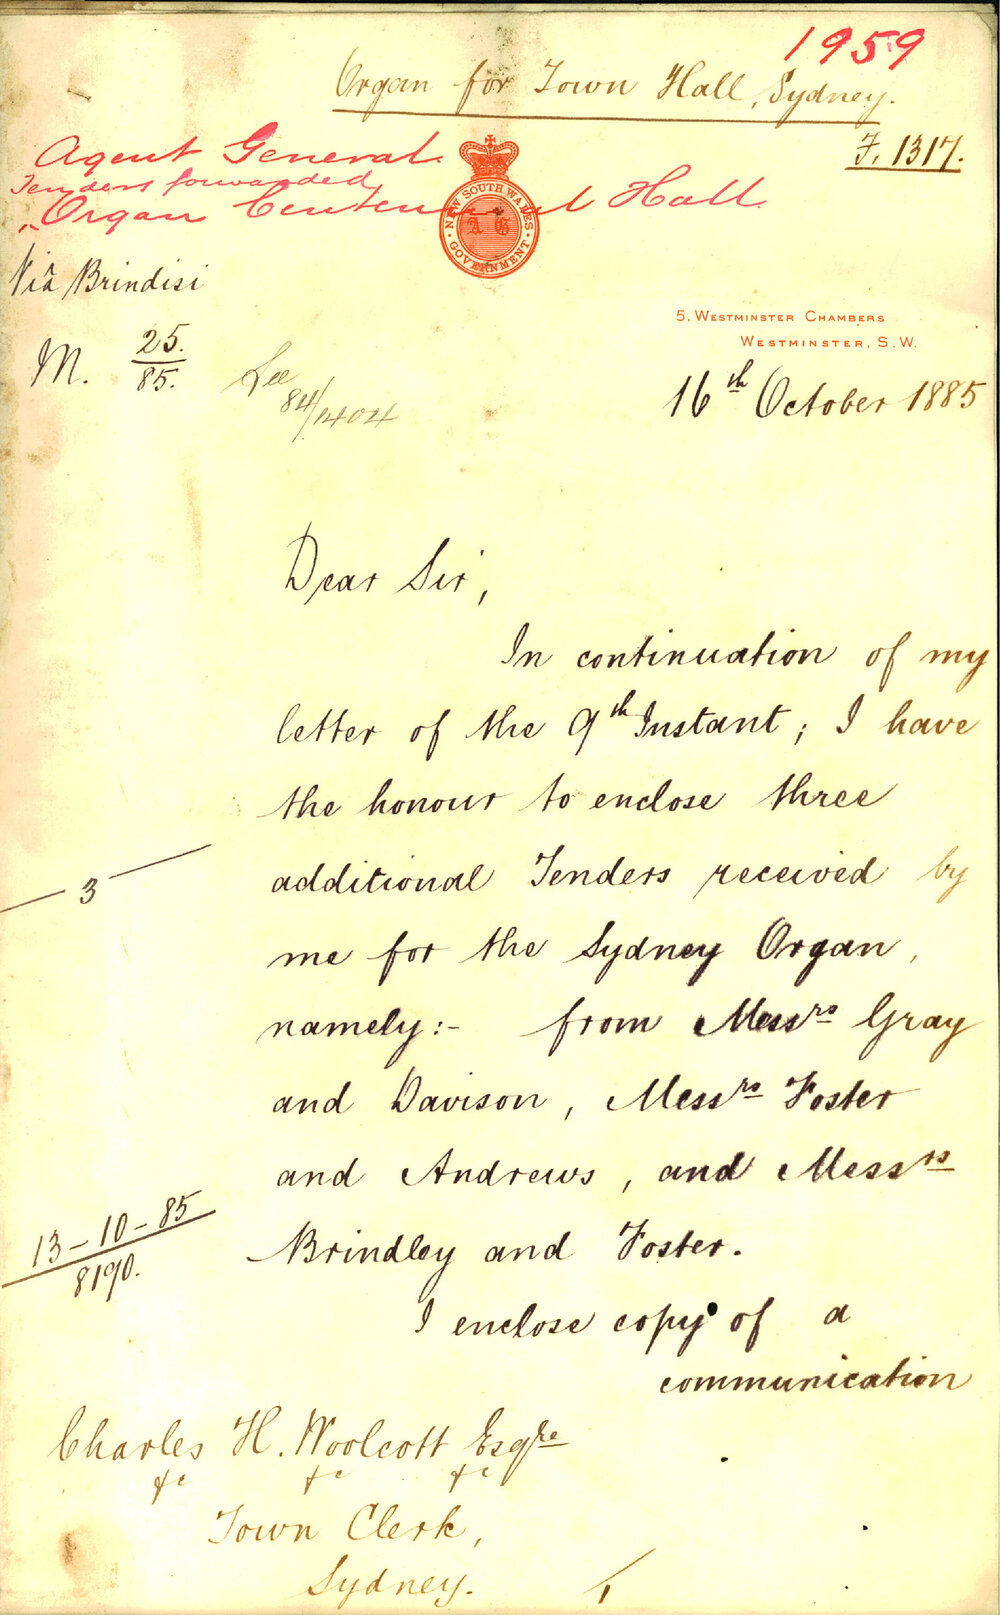 1959
Organ for Town Hall, Sydney.
F. 1317.
Agent General.
Tenders forwarded
"Organ Centennial Hall
NEW SOUTH WALES
A G
GOVERNMENT
Viâ Brindisi
M. 25./85.
See
84/1404
5, WESTMINSTER CHAMBERS
WESTMINSTER, S.W.
16th October 1885
Dear Sir,
In continuation of my
letter of the 9th Instant; I have
the honour to enclose three
3
additional Tenders received by
me for the Sydney Organ,
namely:- from Messrs Gray
and Davison, Messrs Foster
and Andrews, and Messrs
13-10-85
8190.
Brindley and Foster.
I enclose copy of a
communication
Charles H. Woolcott Esqre
&c &c &c
Town Clerk,
Sydney.